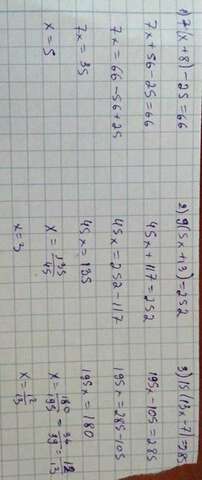 1) 7(x+8)-25=66
7x+56-25=66
7x=66-56+25
7x=35
x=5
2) 9(5x+13)=252
45x+117=252
45x=252-117
45x=135
x=135/45
x=3
3) 15(13x-7)=285
195x-105=285
195x=285-105
195x=180
x=180/195=36/39=12/13
x=12/13